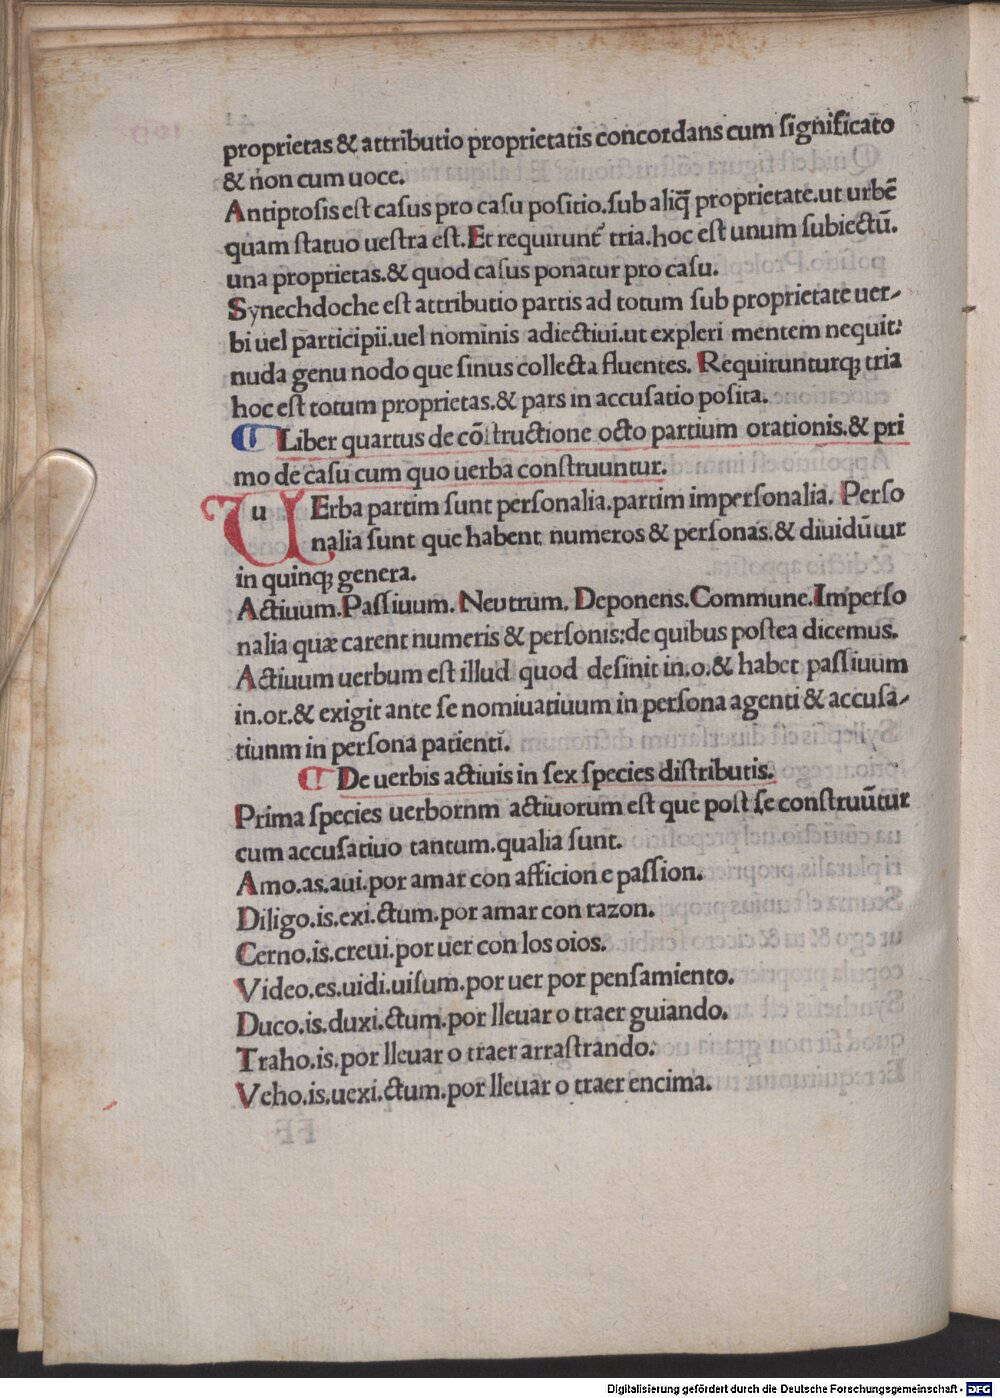 proprietas & attributio proprietatis concordans cum ſignificato
& non cum uoce.
Antiptoſis eſt caſus pro caſu poſitio.ſub aliq̄ proprietate.ut urbē
quam ſtatuo ueſtra eſt.Et requirunt᷑ tria.hoc eſt unum ſubiectū.
una proprietas.& quod caſus ponatur pro caſu.
Synechdoche eſt attributio partis ad totum ſub proprietate uer-
bi uel participii.uel nominis adiectiui.ut expleri mentem nequit:
nuda genu nodo que ſinus collecta fluentes. Requirunturq; tria
hoc eſt totum proprietas.& pars in accuſatio poſita.
¶ Liber quartus de cōſtructione octo partium orationis.& pri
mo de caſu cum quo uerba conſtruuntur.
uErba partim ſunt perſonalia.partim imperſonalia. Perſo
nalia ſunt que habent numeros & perſonas.& diuidūtur
in quinq; genera.
Actiuum.Paſſiuum. Neutrum. Deponens.Commune.Imperſo
nalia quæ carent numeris & perſonis:de quibus poſtea dicemus.
Actiuum uerbum eſt illud quod deſinit in.o.& habet paſſiuum
in.or.& exigit ante ſe nomiuatiuum in perſona agenti & accuſa-
tiunm in perſona patienti.
¶ De uerbis actiuis in ſex ſpecies diſtributis.
Prima ſpecies uerbornm actiuorum eſt que poſt ſe conſtruūtur
cum accuſatiuo tantum.qualia ſunt.
Amo.as.aui.por amar con afficion e paſſion.
Diligo.is.exi.ctum.por amar con razon.
Cerno.is.creui.por uer con los oios.
Video.es.uidi.uiſum.por uer por penſamiento.
Duco.is.duxi.ctum.por lleuar o traer guiando.
Traho.is.por lleuar o traer arraſtrando.
Veho.is.uexi.ctum.por lleuar o traer encima.
Digitalisierung gefördert durch die Deutsche Forschungsgemeinschaft - DFG